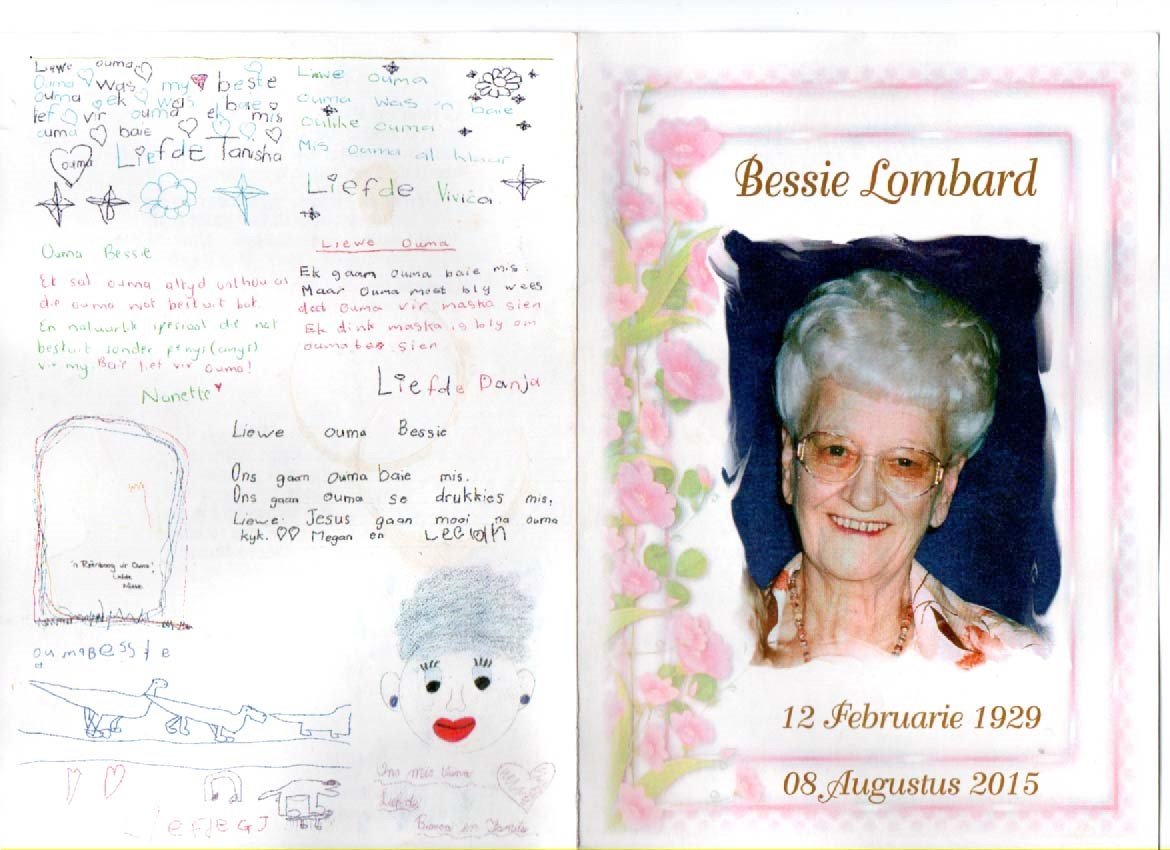 Liewe ouma
Ouma was my beste
ouma ek was baie
lef vir ouma ek mis
ouma baie
ouma
Liefde Tanisha
Liewe Ouma
Ouma was 'n baie
oulike ouma
Mis ouma al klaar
Liefde Vivica.
Ouma Bessie
Ek sal ouma altyd onthou as
die ouma wat beskuit bak.
En natuurlik spesiaal die net
beskuit sonder penys (anys)
vir my. Baie lief vir ouma!
Nanette
Liewe Ouma
Ek gaan ouma baie mis.
Maar ouma moet bly wees
dat ouma vir maska sien
Ek dink maska is bly om
ouma te sien
Liefde Danja
Liewe Ouma Bessie
Ons gaan ouma baie mis.
Ons gaan ouma se drukkies mis,
Liewe. Jesus gaan mooi na ouma
kyk. Megan en Leeah
'n Reënboog vir Ouma!
Liefde
oumaBessie
Liefde GJ
Ons mis Ouma
Liefde
Bessie Lombard
12 Februarie 1929
08 Augustus 2015